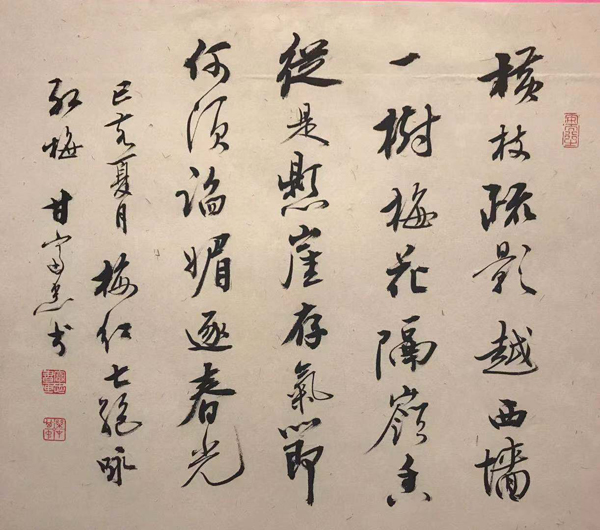 橫枝疏影越西墻
一樹梅花隔嶺香
從是懸崖存氣節
何須諂媚逐春光
己亥夏月 梅红七絕咏
红梅 甘富书